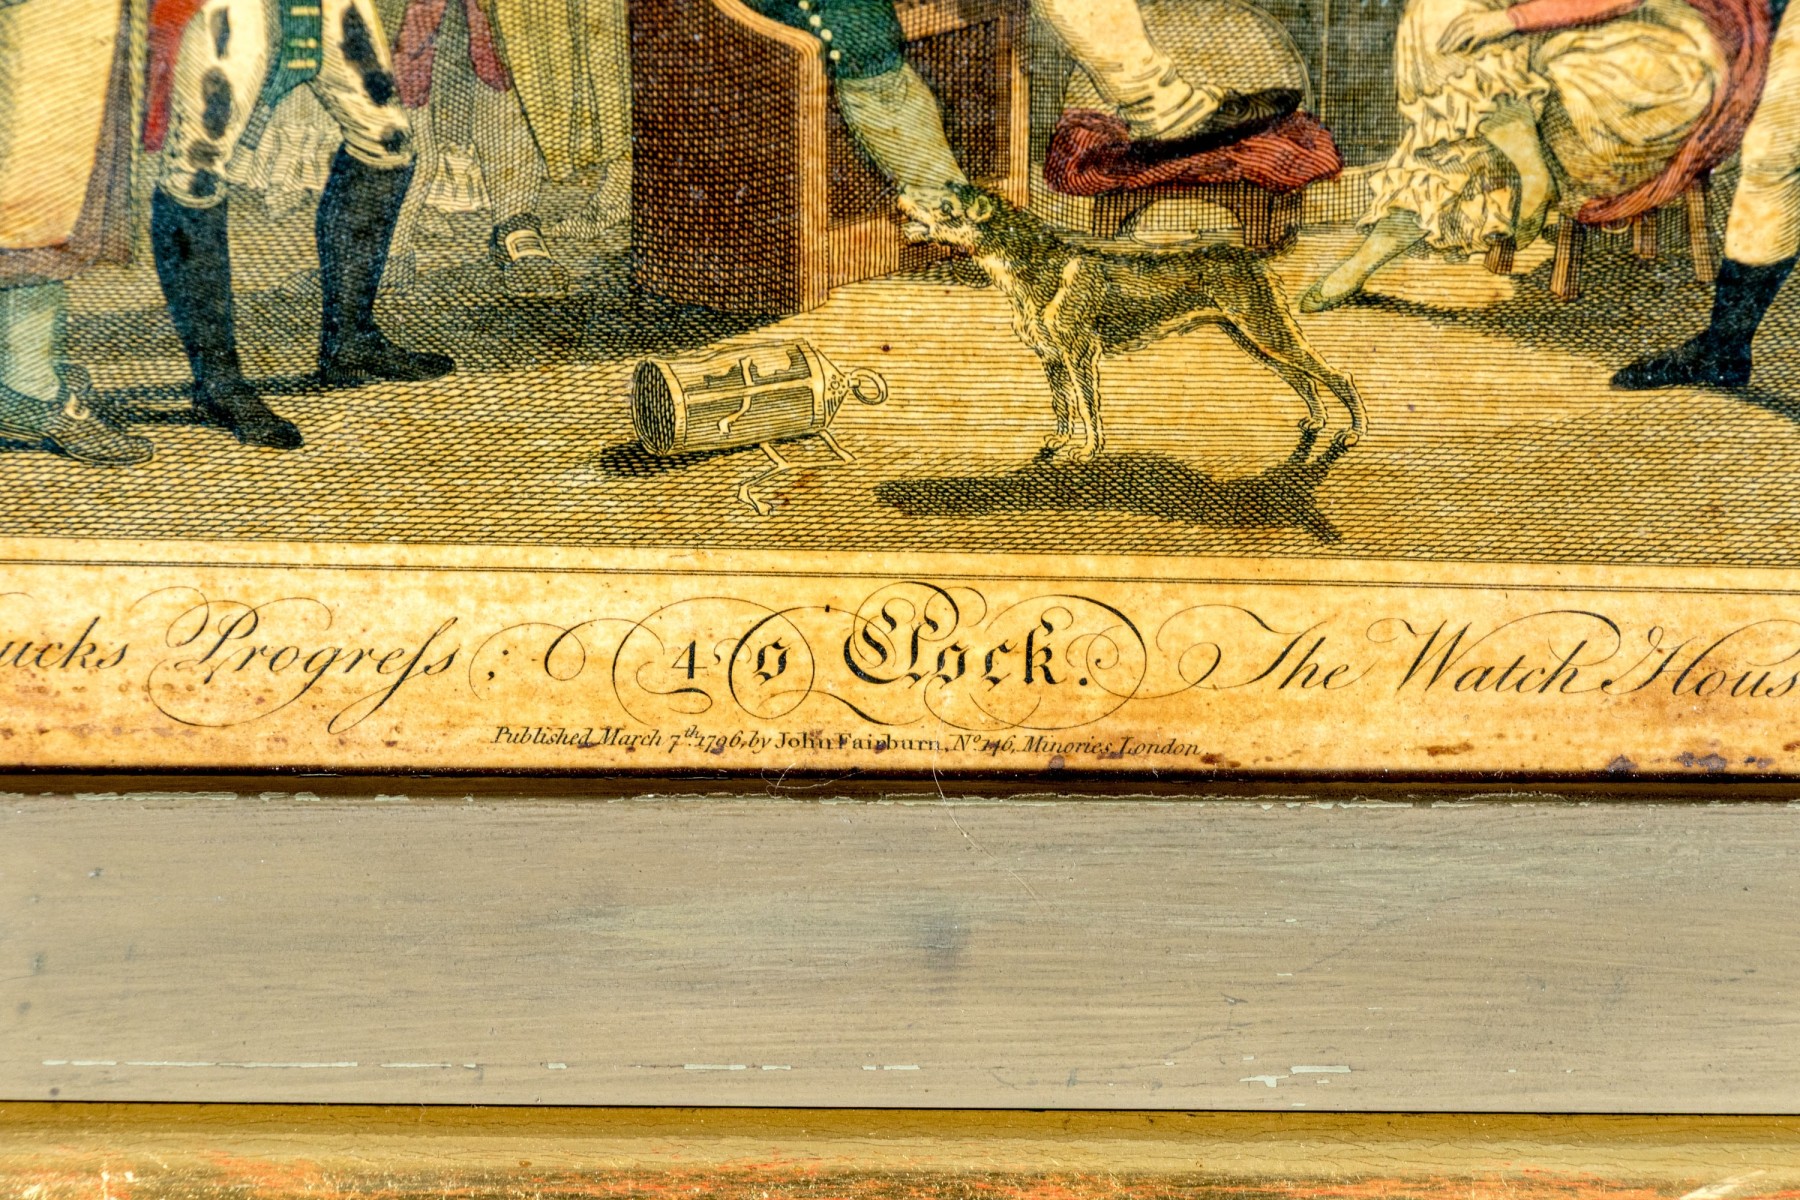 ucks Progreſs; 4 o Clock. The Watch Hous
Published March 7th. 1796, by John Fairburn, No. 146, Minories London.